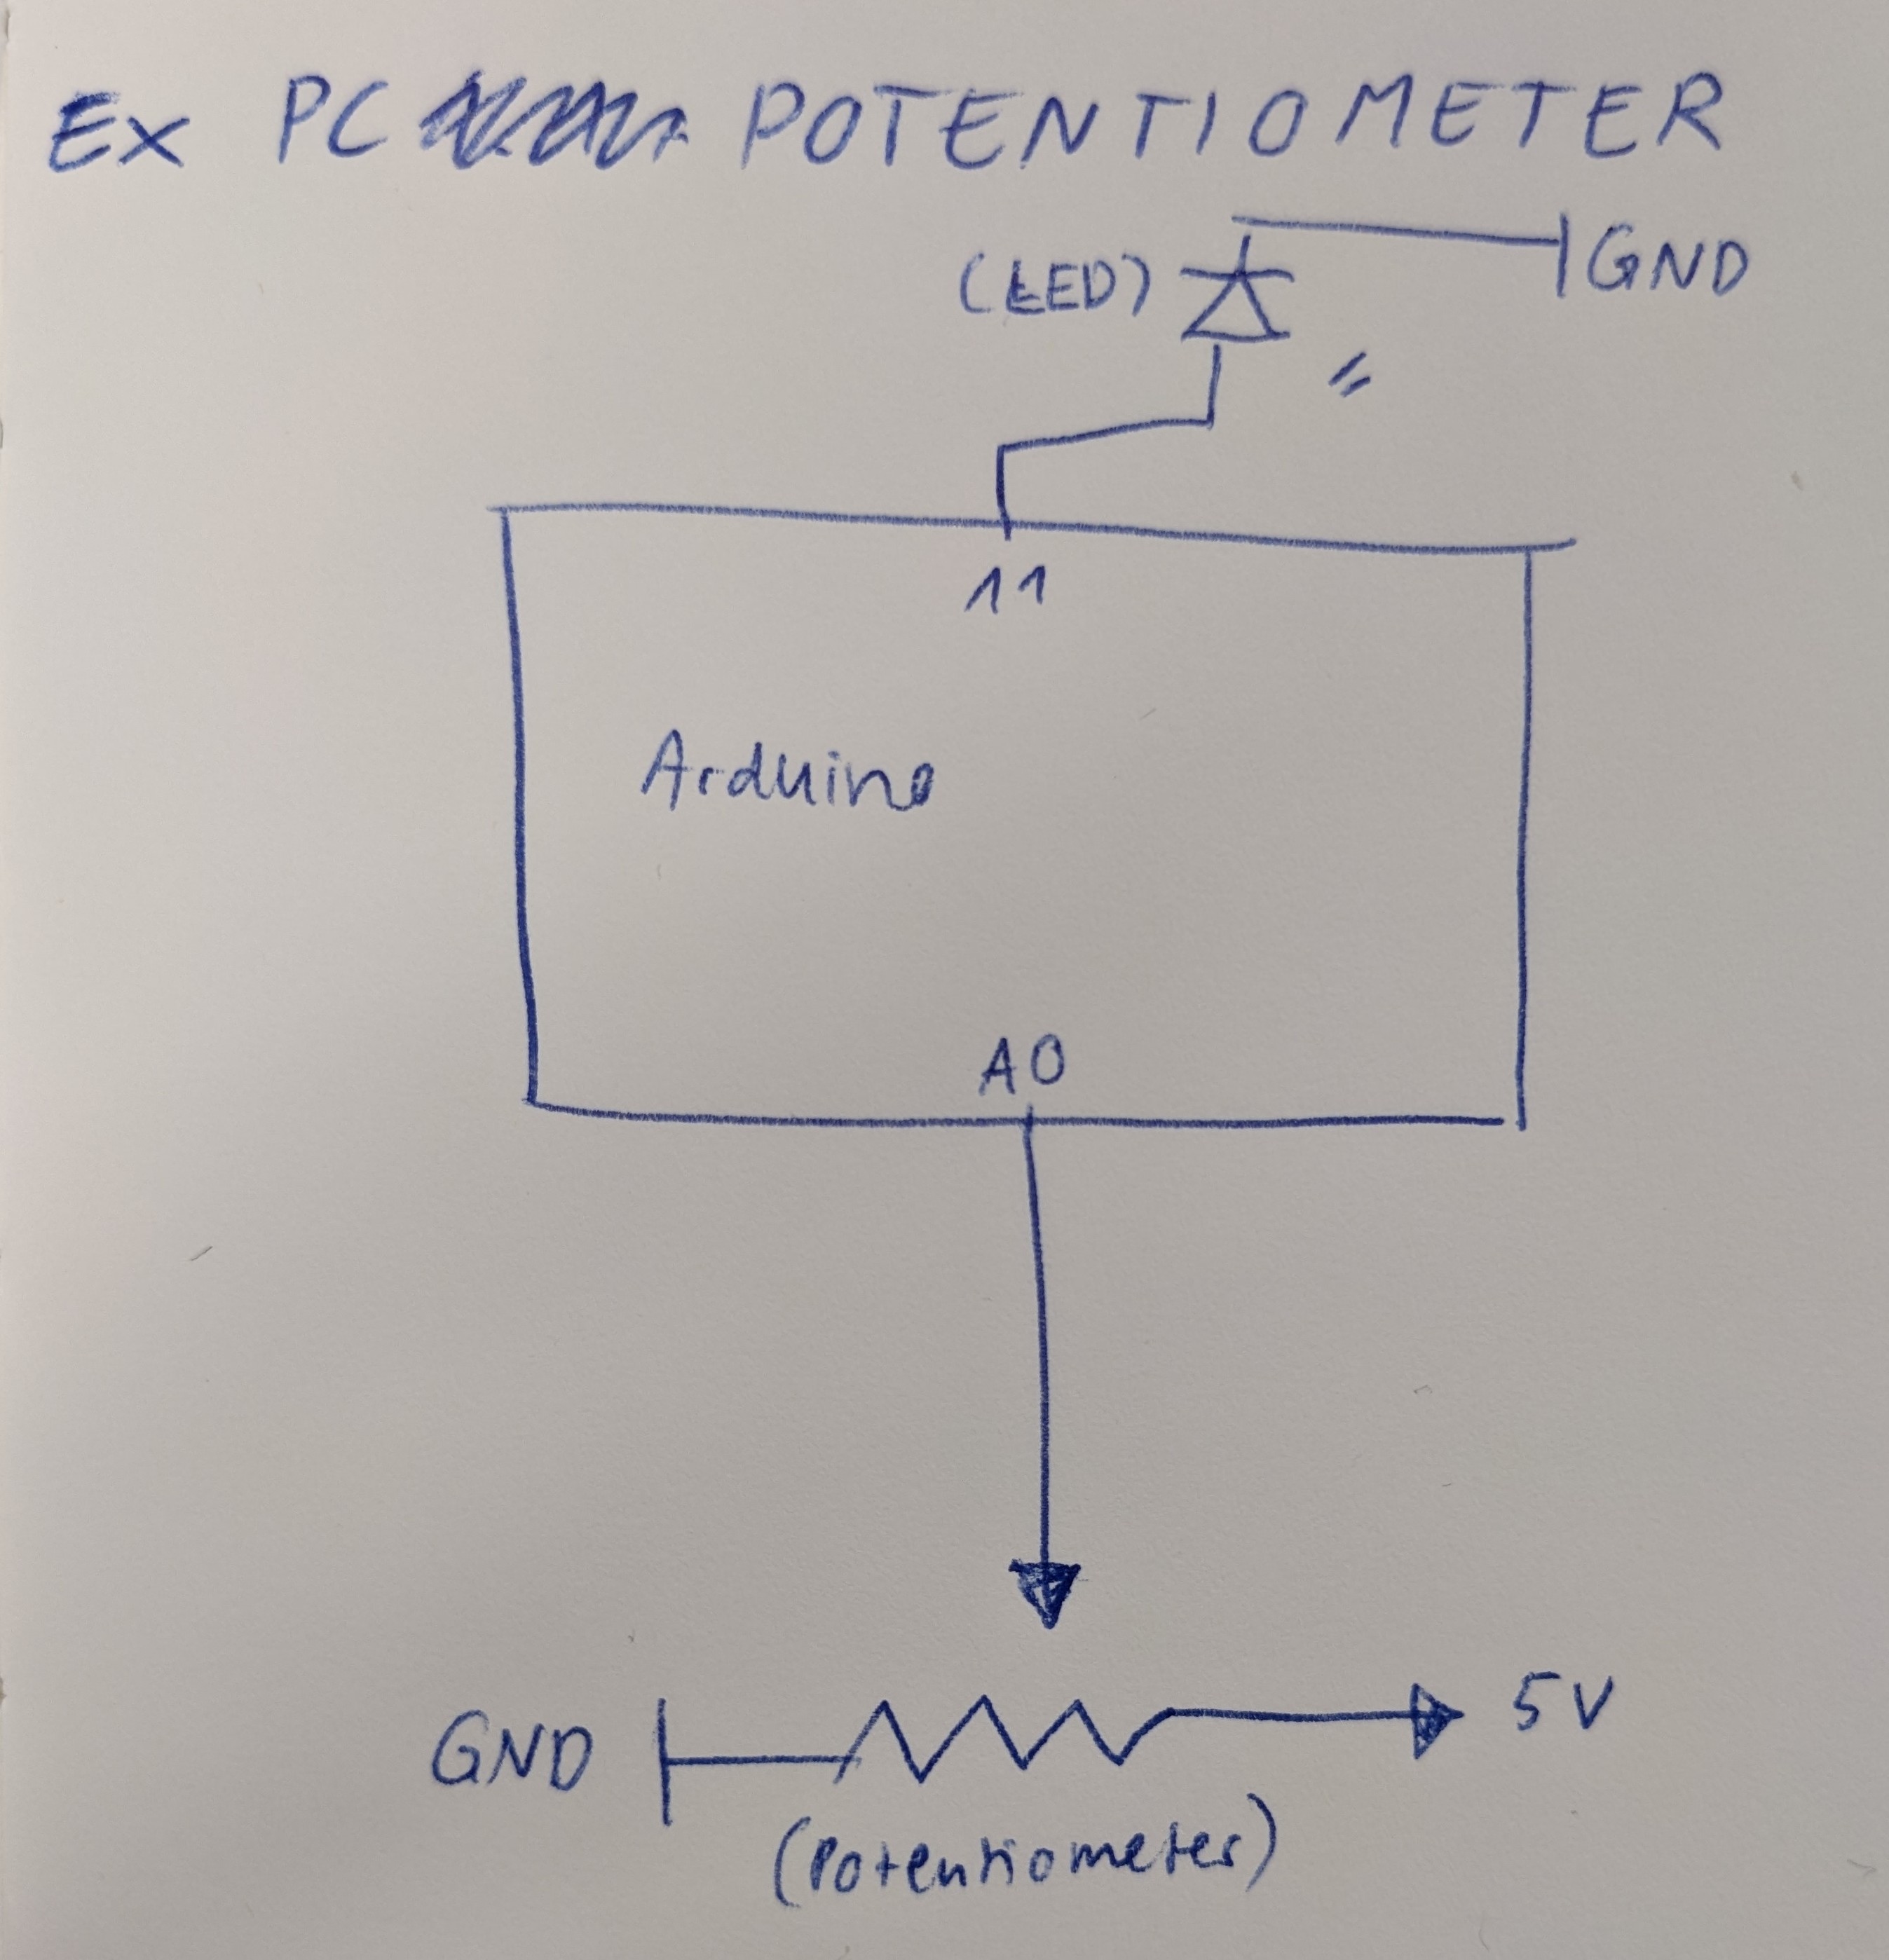 Ex PC POTENTIOMETER
(LED)
GND
11
Arduino
A0
GND
5V
(Potentiometer)